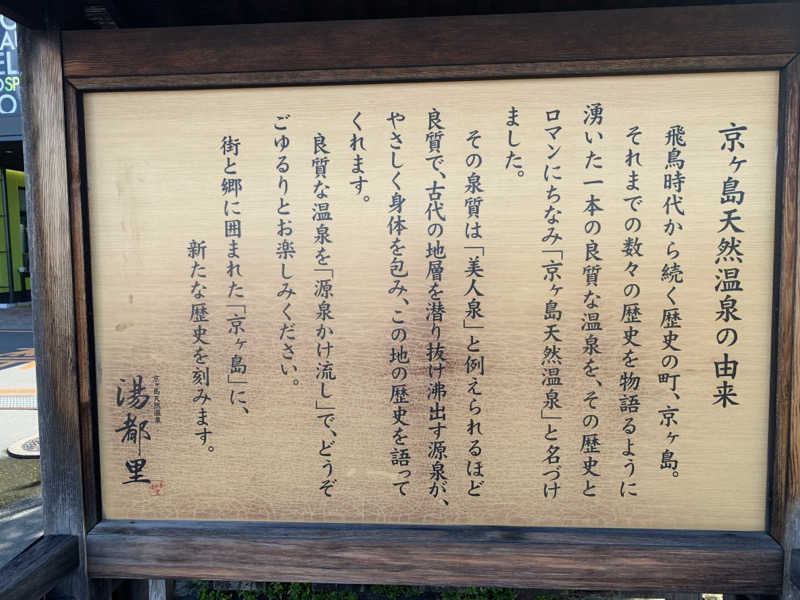 京ヶ島天然温泉の由来
飛鳥時代から続く歴史の町、京ヶ島。
それまでの数々の歴史を物語るように
湧いた一本の良質な温泉を、その歴史と
ロマンにちなみ「京ヶ島天然温泉」と名づけ
ました。
その泉質は「美人泉」と例えられるほど
良質で、古代の地層を潜り抜け沸出す源泉が、
やさしく身体を包み、この地の歴史を語って
くれます。
良質な温泉を「源泉かけ流し」で、どうぞ
ごゆるりとお楽しみください。
街と郷に囲まれた「京ヶ島」に、
新たな歴史を刻みます。
京ヶ島天然温泉
湯都里